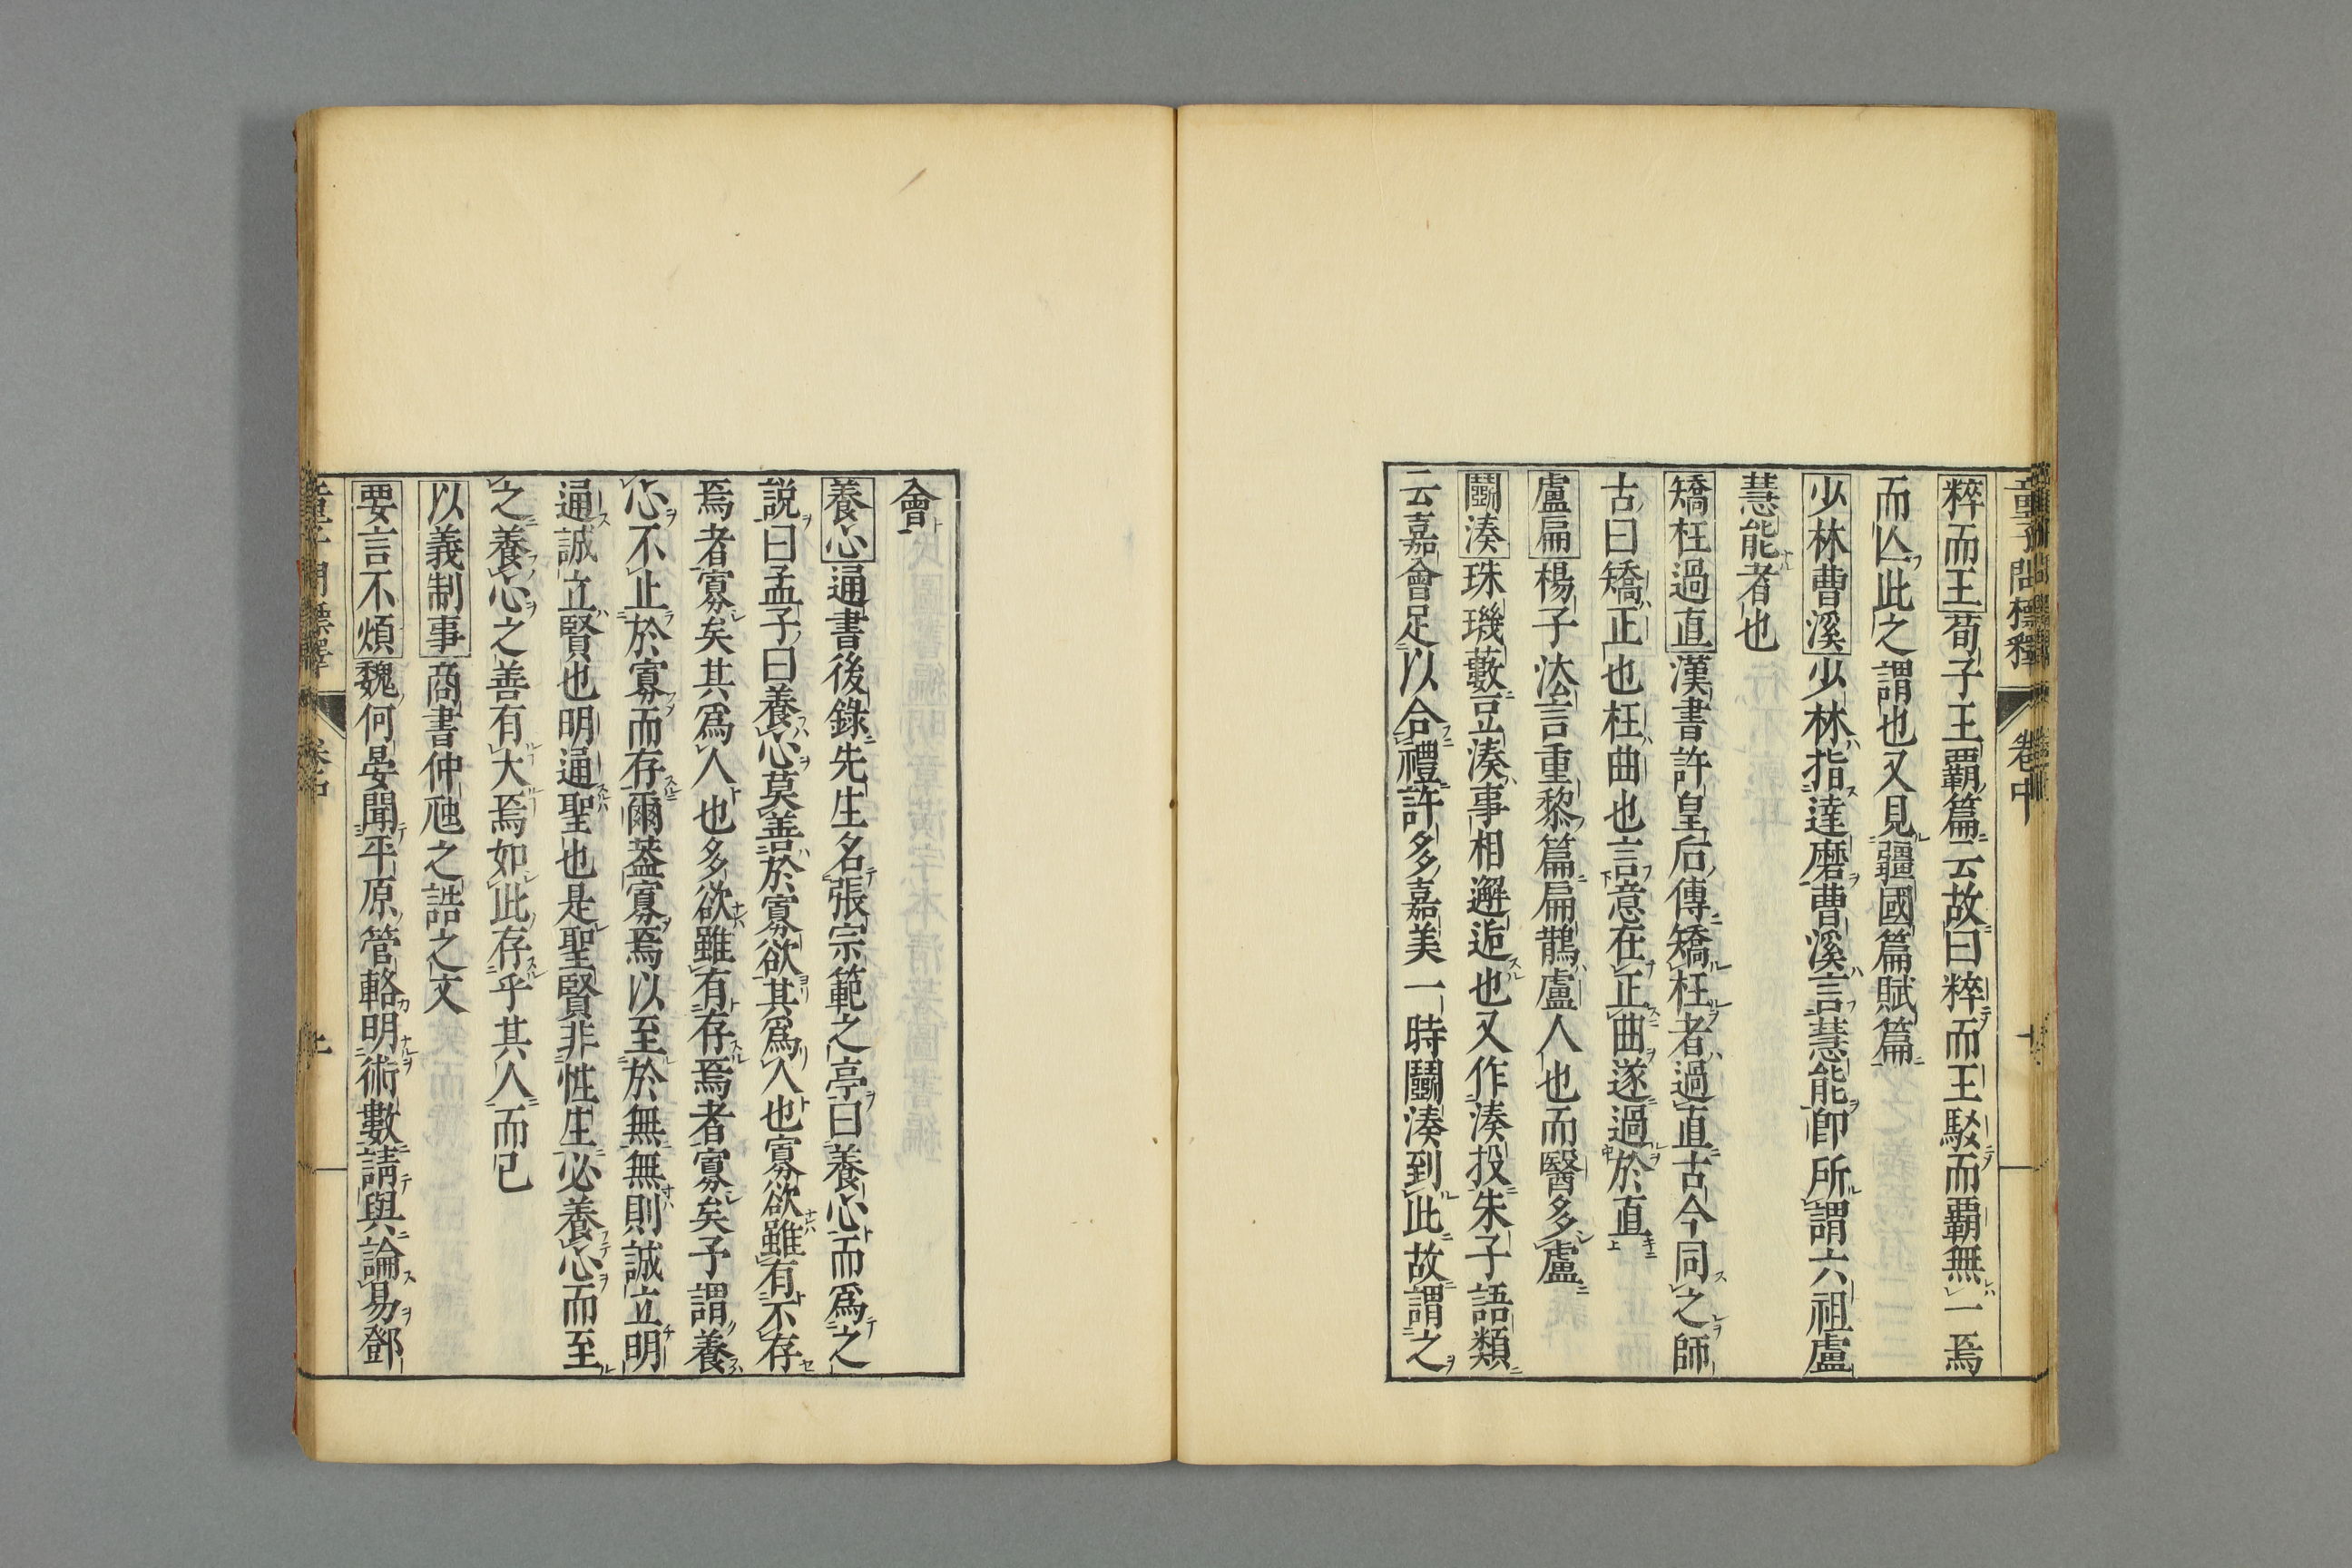 童子問標釋 卷中
粹而王荀子王覇篇云故曰粹而王駁而覇無一焉
而亾此之謂也又見彊國篇賦篇
少林曹溪少林指達磨曹溪言慧能卽所謂六祖盧
慧能者也
矯枉過直漢書許皇后傳矯枉者過直古今同之師
古曰矯正也枉曲也言意在正曲遂過於直
盧扁楊子法言重黎篇扁鵲盧人也而醫多盧
鬭湊珠璣藪云湊事相邂逅也又作湊投朱子語類
云嘉會足以合禮許多嘉美一時鬭湊到此故謂之
嘉會
養心通書後錄先生名張宗範之亭曰養心而爲之
說曰孟子曰養心莫善於寡欲其爲人也寡欲雖有不存
焉者寡矣其爲人也多欲雖有存焉者寡矣予謂養
心不止於寡而存爾蓋寡焉以至於無無則誠立明
通誠立賢也明通聖也是聖賢非性生必養心而至
之養心之善有大焉如此存乎其人而已
以義制事商書仲虺之誥之文
要言不煩魏何晏聞平原管輅明術數請與論易鄧